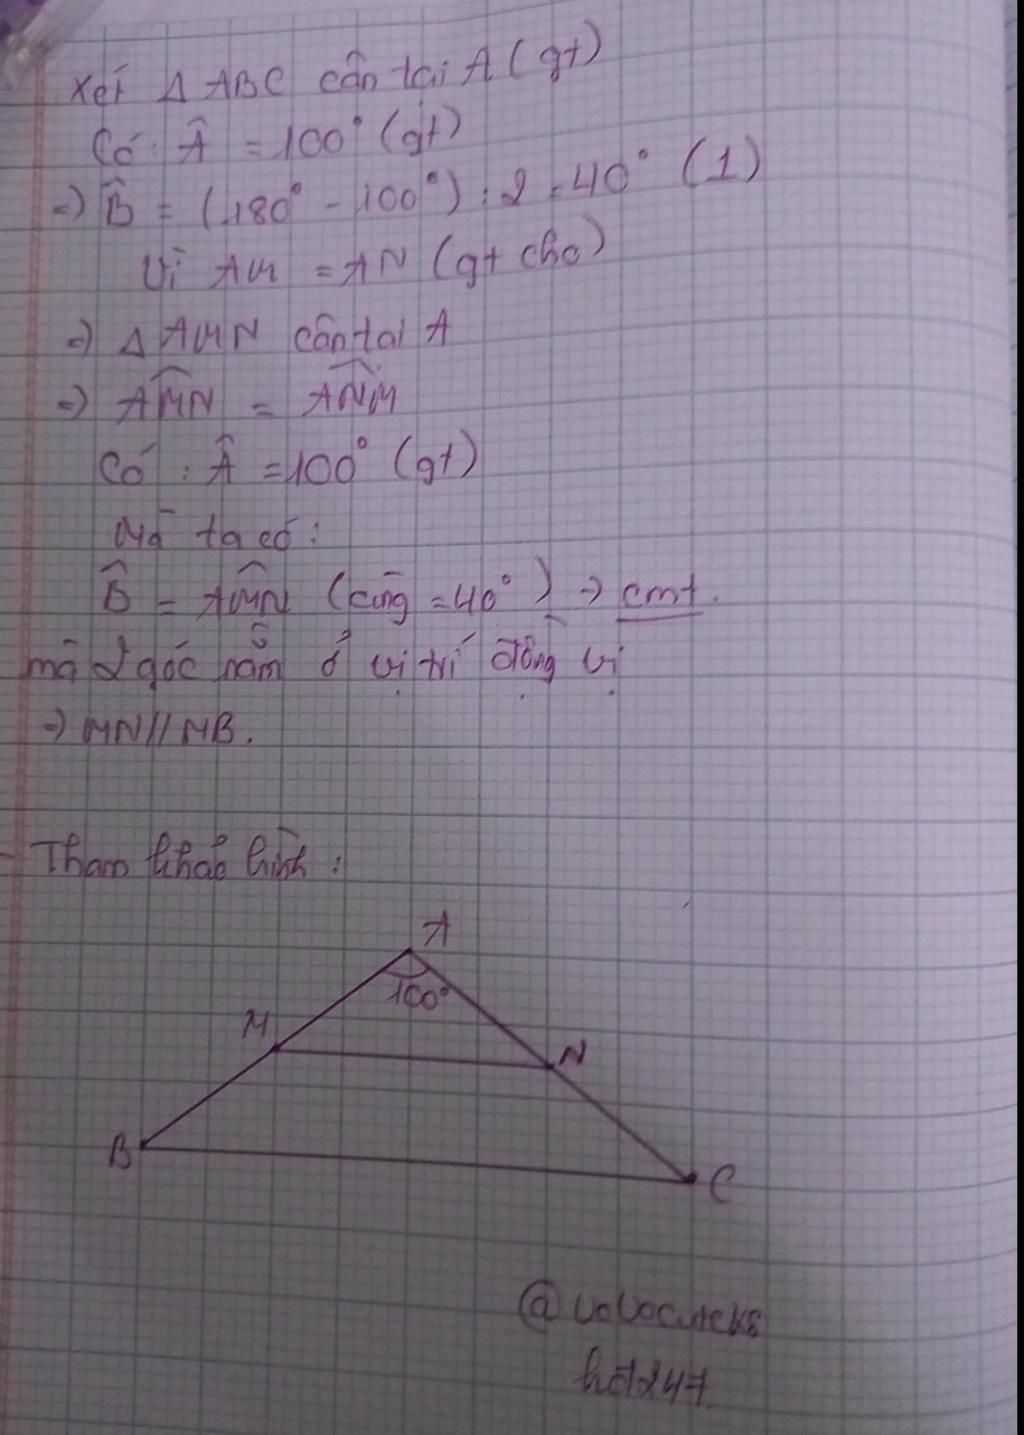 Xét Δ ABC cân tại A (gt)
Có: Â = 100° (gt)
=> B̂ = (180° - 100°) : 2 = 40° (1)
Vì AM = AN (gt cho)
=> Δ AMN cân tại A
=> AMN = ANM
Có: Â = 100° (gt)
Mà ta có:
B̂ = AMN (cùng = 40°) -> cmt.
mà 2 góc nằm ở vị trí đồng vị
=> MN // MB.
- Tham khảo hình:
A
100°
M
N
B
C
@vovocuteks
hd247